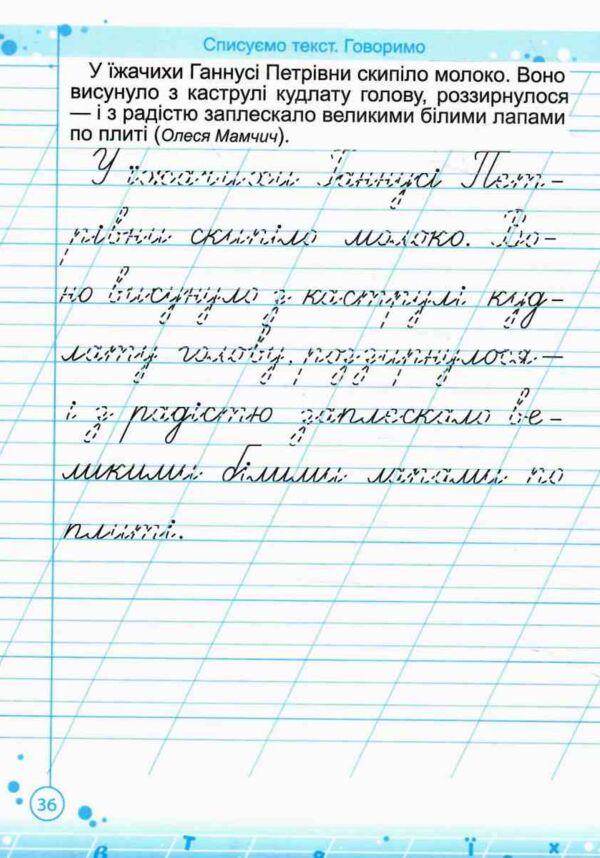 Списуємо текст. Говоримо
У їжачихи Ганнусі Петрівни скипіло молоко. Воно
висунуло з каструлі кудлату голову, роззирнулося
— і з радістю заплескало великими білими лапами
по плиті (Олеся Мамчич).
У їжачихи Ганнусі Пет-
рівни скипіло молоко. Во-
но висунуло з каструлі куд-
лату голову, роззирнулося —
і з радістю заплескало ве-
ликими білими лапами по
плиті.
36
в т я ї х